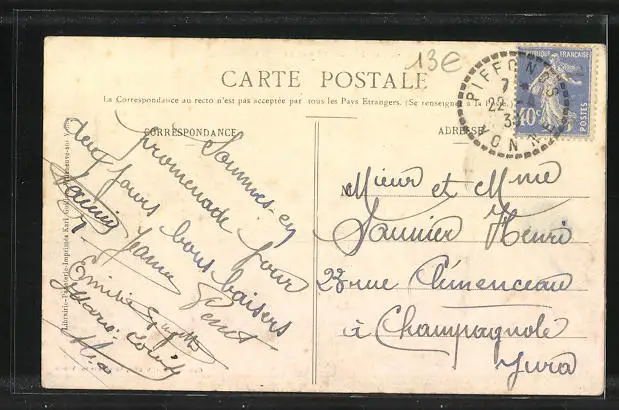 13€
CARTE POSTALE
La Correspondance au recto n'est pas acceptée par tous les Pays Etrangers. (Se renseigner à la
CORRESPONDANCE
ADRESSE
PIFFONDS
7
22
3
YONNE
FRANÇAISE
40c
POSTES
Sommes en
promenade pour
deux jours bons baisers
Jeanne
Emilie
Marie Louise
Mieur et Mme
Saunier Henri
23 rue Clémenceau
à Champagnole
Jura
Librairie-Papeterie-Imprimés Karl